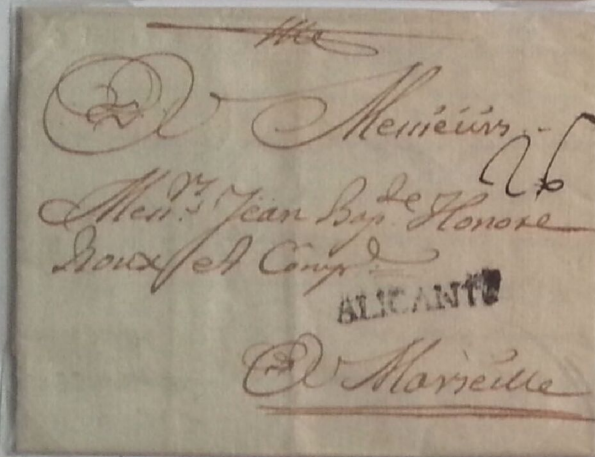 A Messieurs
26
Messrs. Jean Bapte. Honore
Roux et Compe.
ALICANTE
A Marseille